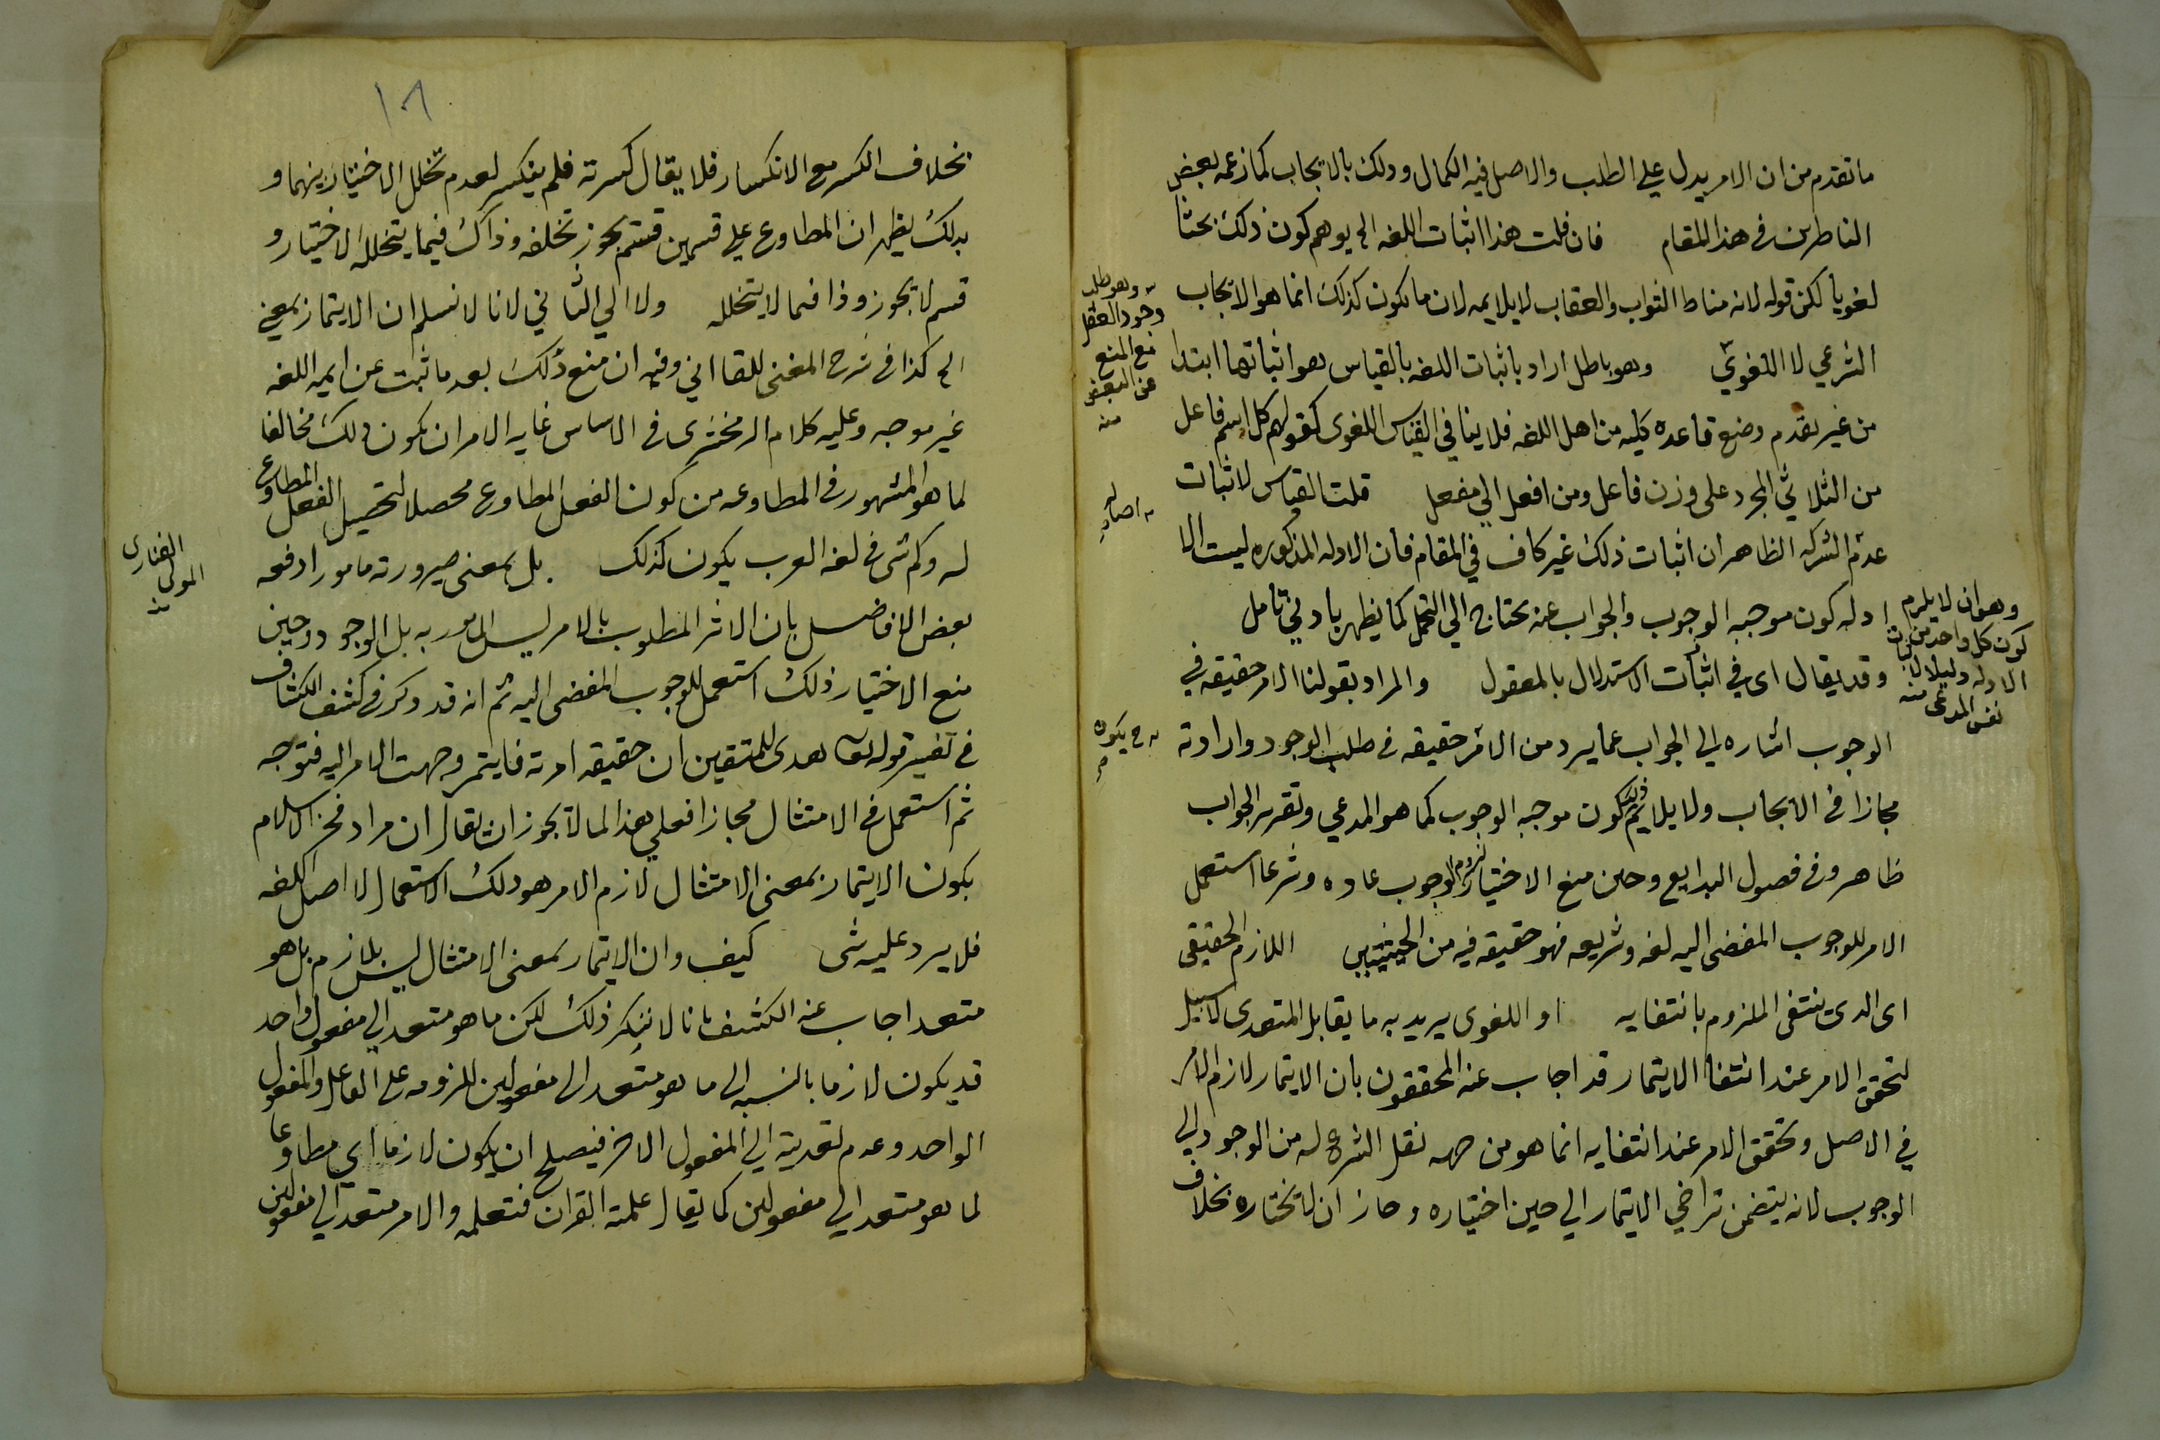 ما تقدم من ان الامر يدل علي الطلب والاصل فيه الكمال وذلك بالايجاب كما زعمه بعض
الناظرين في هذا المقام فان قلت هذا اثبات اللغه الخ يوهم كون ذلك بحثا
لغويا لكن قوله لانه مناط الثواب والعقاب لا يلايمه لان ما يكون كذلك انما هو الايجاب
الشرعي لا اللغوي وهو باطل اراد باثبات اللغه بالقياس هو اثباتها ابتدا
من غير تقدم وضع قاعده كليه من اهل اللغه فلا ينافي القياس اللغوي كقولهم كل اسم فاعل
من الثلاثي المجرد على وزن فاعل ومن افعل الي مفعل قلت القياس لاثبات
عدم الشركه الظاهر ان اثبات ذلك غير كاف في المقام فان الادله المذكوره ليست الا
ادله كون موجبه الوجوب والجواب عنه يحتاج الي التحمل كما يظهر بادني تامل
وقد يقال اى في اثبات الاستدلال بالمعقول والمراد بقولنا الامر حقيقه في
الوجوب اشاره الي الجواب عما يرد من الامر حقيقه في طلب الوجود وارادته
مجازا في الايجاب ولا يلايم ذلك كون موجبه الوجوب كما هو المدعي وتقرير الجواب
ظاهر وفي فصول البدايع وحين منع الاختيار لزوم الوجوب عاده وشرعا استعمل
الامر للوجوب المفضى اليه لغه وشريعه فهو حقيقه فيه من الحيثيتين اللازم الحقيقي
اى الذى ينتفى الملزوم بانتفايه او اللغوى يريد به ما يقابل المتعدى لا سبيل
لتحقق الامر عند انتفا الايتمار قد اجاب عنه المحققون بان الايتمار لازم الامر
في الاصل وتحقق الامر عند انتفايه انما هو من جهه نقل الشرع له من الوجود الي
الوجوب لانه يتضمن تراخي الايتمار الي حين اختياره وجاز ان لا يختاره بخلاف
وهو طلب
وجود الفعل
مع المنع
عن النقيض
منه
وهو ان لا يلزم
كون كل واحد من
الادله دليلا
نفس المدعى منه
١٨
بخلاف الكسر مع الانكسار فلا يقال كسرته فلم ينكسر لعدم تخلل الاختيار بينهما و
بذلك يظهر ان المطاوع علي قسمين قسم يجوز تخلفه وذاك فيما يتخلله الاختيار و
قسم لا يجوز وذا فيما لا يتخلله ولا الي الثاني لانا لا نسلم ان الايتمار بمعني
الخ كذا في شرح المغنى للقااني وفيه ان منع ذلك بعد ما ثبت عن ايمه اللغه
غير موجه وعليه كلام الزمخشرى في الاساس غايه الامر ان يكون ذلك مخالفا
لما هو المشهور في المطاوعه من كون الفعل المطاوع محصلا لتحصيل الفعل المطاوع
له وكم شى في لغه العرب يكون كذلك بل بمعنى صيرورته مامورا دفعه
بعض الافاضل بان الاثر المطلوب بالامر ليس المامور به بل الوجود وحين
منع الاختيار ذلك استعمل للوجوب المفضى اليه ثم انه قد ذكر في كشف الكشاف
في تفسير قوله تعا هدى للمتقين ان حقيقه امرته فايتمر وجهت الامر اليه فتوجه
ثم استعمل في الامتثال مجازا فعلي هذا لما لا يجوز ان يقال ان مراد فخر الاسلام
بكون الايتمار بمعنى الامتثال لازم الامر هو ذلك الاستعمال لا اصل اللغه
فلا يرد عليه شى كيف وان الايتمار بمعنى الامتثال ليس بلازم بل هو
متعد اجاب عنه الكشف بانا لا ننكر ذلك لكن ما هو متعد الي مفعول واحد
قد يكون لازما بالنسبه الي ما هو متعد الى مفعولين للزومه على الفاعل والمفعول
الواحد وعدم تعديته الي المفعول الاخر فيصلح ان يكون لازما اي مطاوعا
لما هو متعد الي مفعولين كما يقال علمته القران فتعلمه والامر متعد الي مفعولين
الفنارى
المولى